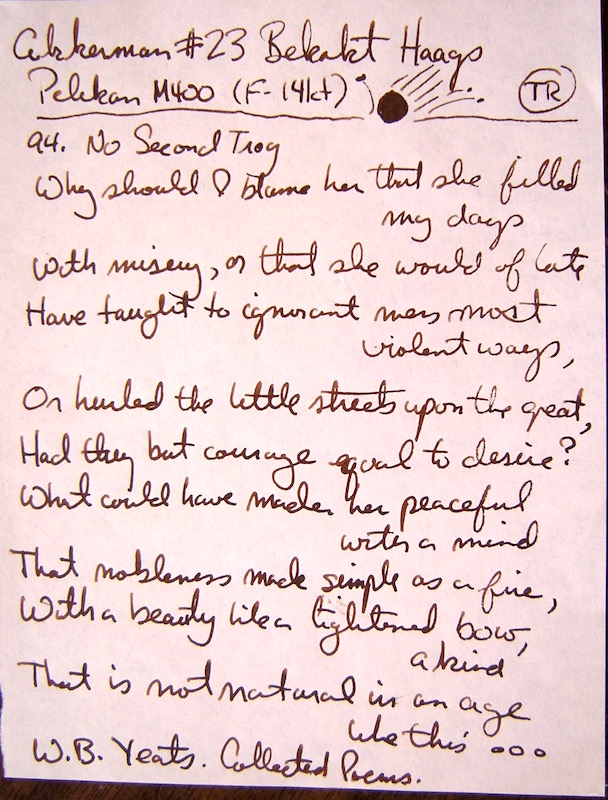 Akkerman #23 Bekakt Haags
Pelikan M400 (F-14kt)
TR
94. No Second Troy
Why should I blame her that she filled
my days
With misery, or that she would of late
Have taught to ignorant men most
violent ways,
Or hurled the little streets upon the great,
Had they but courage equal to desire?
What could have made her peaceful
with a mind
That nobleness made simple as a fire,
With a beauty like a tightened bow,
a kind
That is not natural in an age
like this ...
W.B. Yeats. Collected Poems.